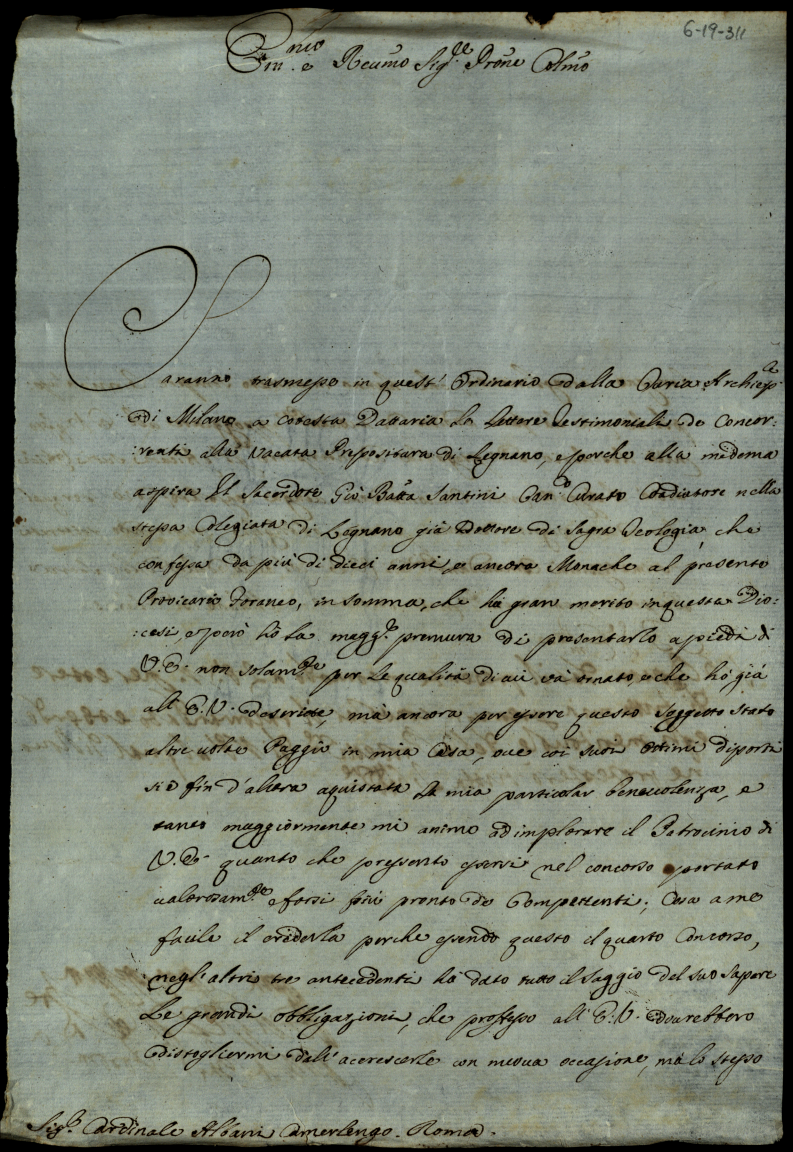 6-19-311
Em.mo e Reumo Sig.re Prone Colmo
Saranno trasmesso in quest' Ordinario dalla Curia Archiep.le
di Milano a cotesta Dattaria Le Lettere Testimoniali de Concor:
:renti alla vacata Prepositura di Legnano, e perche alla medema
aspira Il Sacerdote Gio Batta Santini Can.co Curato Coadiutore nella
stessa Colegiata di Legnano già Dottore di Sagra Teologia, che
confessa da più di dieci anni, e ancora Monache al presente
Provicario foraneo, in somma, che ha gran merito in questa Dio:
:cesi, e però hò la magg.r premura di presentarlo a piedi di
V.E. non solam.te per le qualità di cui và ornato, e che hò già
all' E.V. descritte, mà ancora per essere questo Soggetto stato
altre volte Paggio in mia Casa, ove coi suoi ottimi diporti
si è fin d'allora aquistata la mia particolar benevolenza, e
tanto maggiormente mi animo ad implorare il Patrocinio di
V.E. quanto che pressento essersi nel concorso portato
valorosam.te e forsi più pronto de Compettenti; Cosa a me
facile il crederla perche essendo questo il quarto Concorso,
negl'altri tre antecedenti hà dato tutto il saggio del suo sapere
Le grandi obbligazioni, che professo all' E.V. dovrebbero
distogliermi dall'acrescerle con nuova occasione, mà lo stesso
Sig.r Cardinale Albani Camerlengo. Roma.